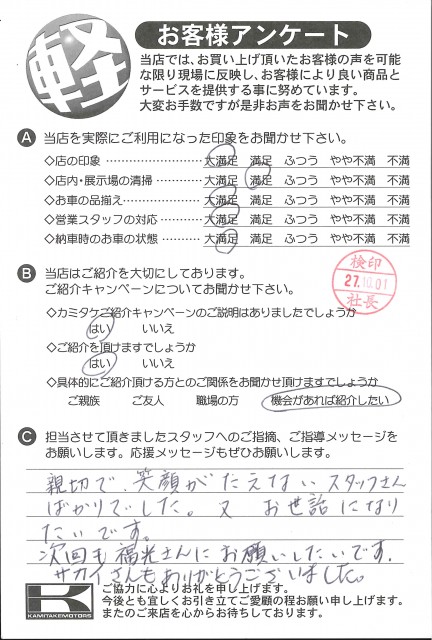 軽
お客様アンケート
当店では、お買い上げ頂いたお客様の声を可能
な限り現場に反映し、お客様により良い商品と
サービスを提供する事に努めています。
大変お手数ですが是非お声をお聞かせ下さい。
A 当店を実際にご利用になった印象をお聞かせ下さい。
◇店の印象 ………………… 大満足 満足 ふつう やや不満 不満
◇店内・展示場の清掃………… 大満足 満足 ふつう やや不満 不満
◇お車の品揃え ……………… 大満足 満足 ふつう やや不満 不満
◇営業スタッフの対応………… 大満足 満足 ふつう やや不満 不満
◇納車時のお車の状態………… 大満足 満足 ふつう やや不満 不満
B 当店はご紹介を大切にしております。
ご紹介キャンペーンについてお聞かせ下さい。
検印
27.10.01
社長
◇カミタケご紹介キャンペーンのご説明はありましたでしょうか
はい いいえ
◇ご紹介を頂けますでしょうか
はい いいえ
◇具体的にご紹介頂ける方とのご関係をお聞かせ頂けますでしょうか
ご親族 ご友人 職場の方 機会があれば紹介したい
C 担当させて頂きましたスタッフへのご指摘、ご指導メッセージを
お願いします。応援メッセージもぜひお願いします。
親切で、笑顔がたえないスタッフさん
ばかりでした。又 お世話になり
たいです。
次回も福光さんにお願いしたいです。
サカイさんもありがとうございました。
K
KAMITAKEMOTORS
ご協力に心よりお礼を申し上げます。
今後とも宜しくお引き立てご愛顧の程お願い申し上げます。
またのご来店を心からお待ちしております。